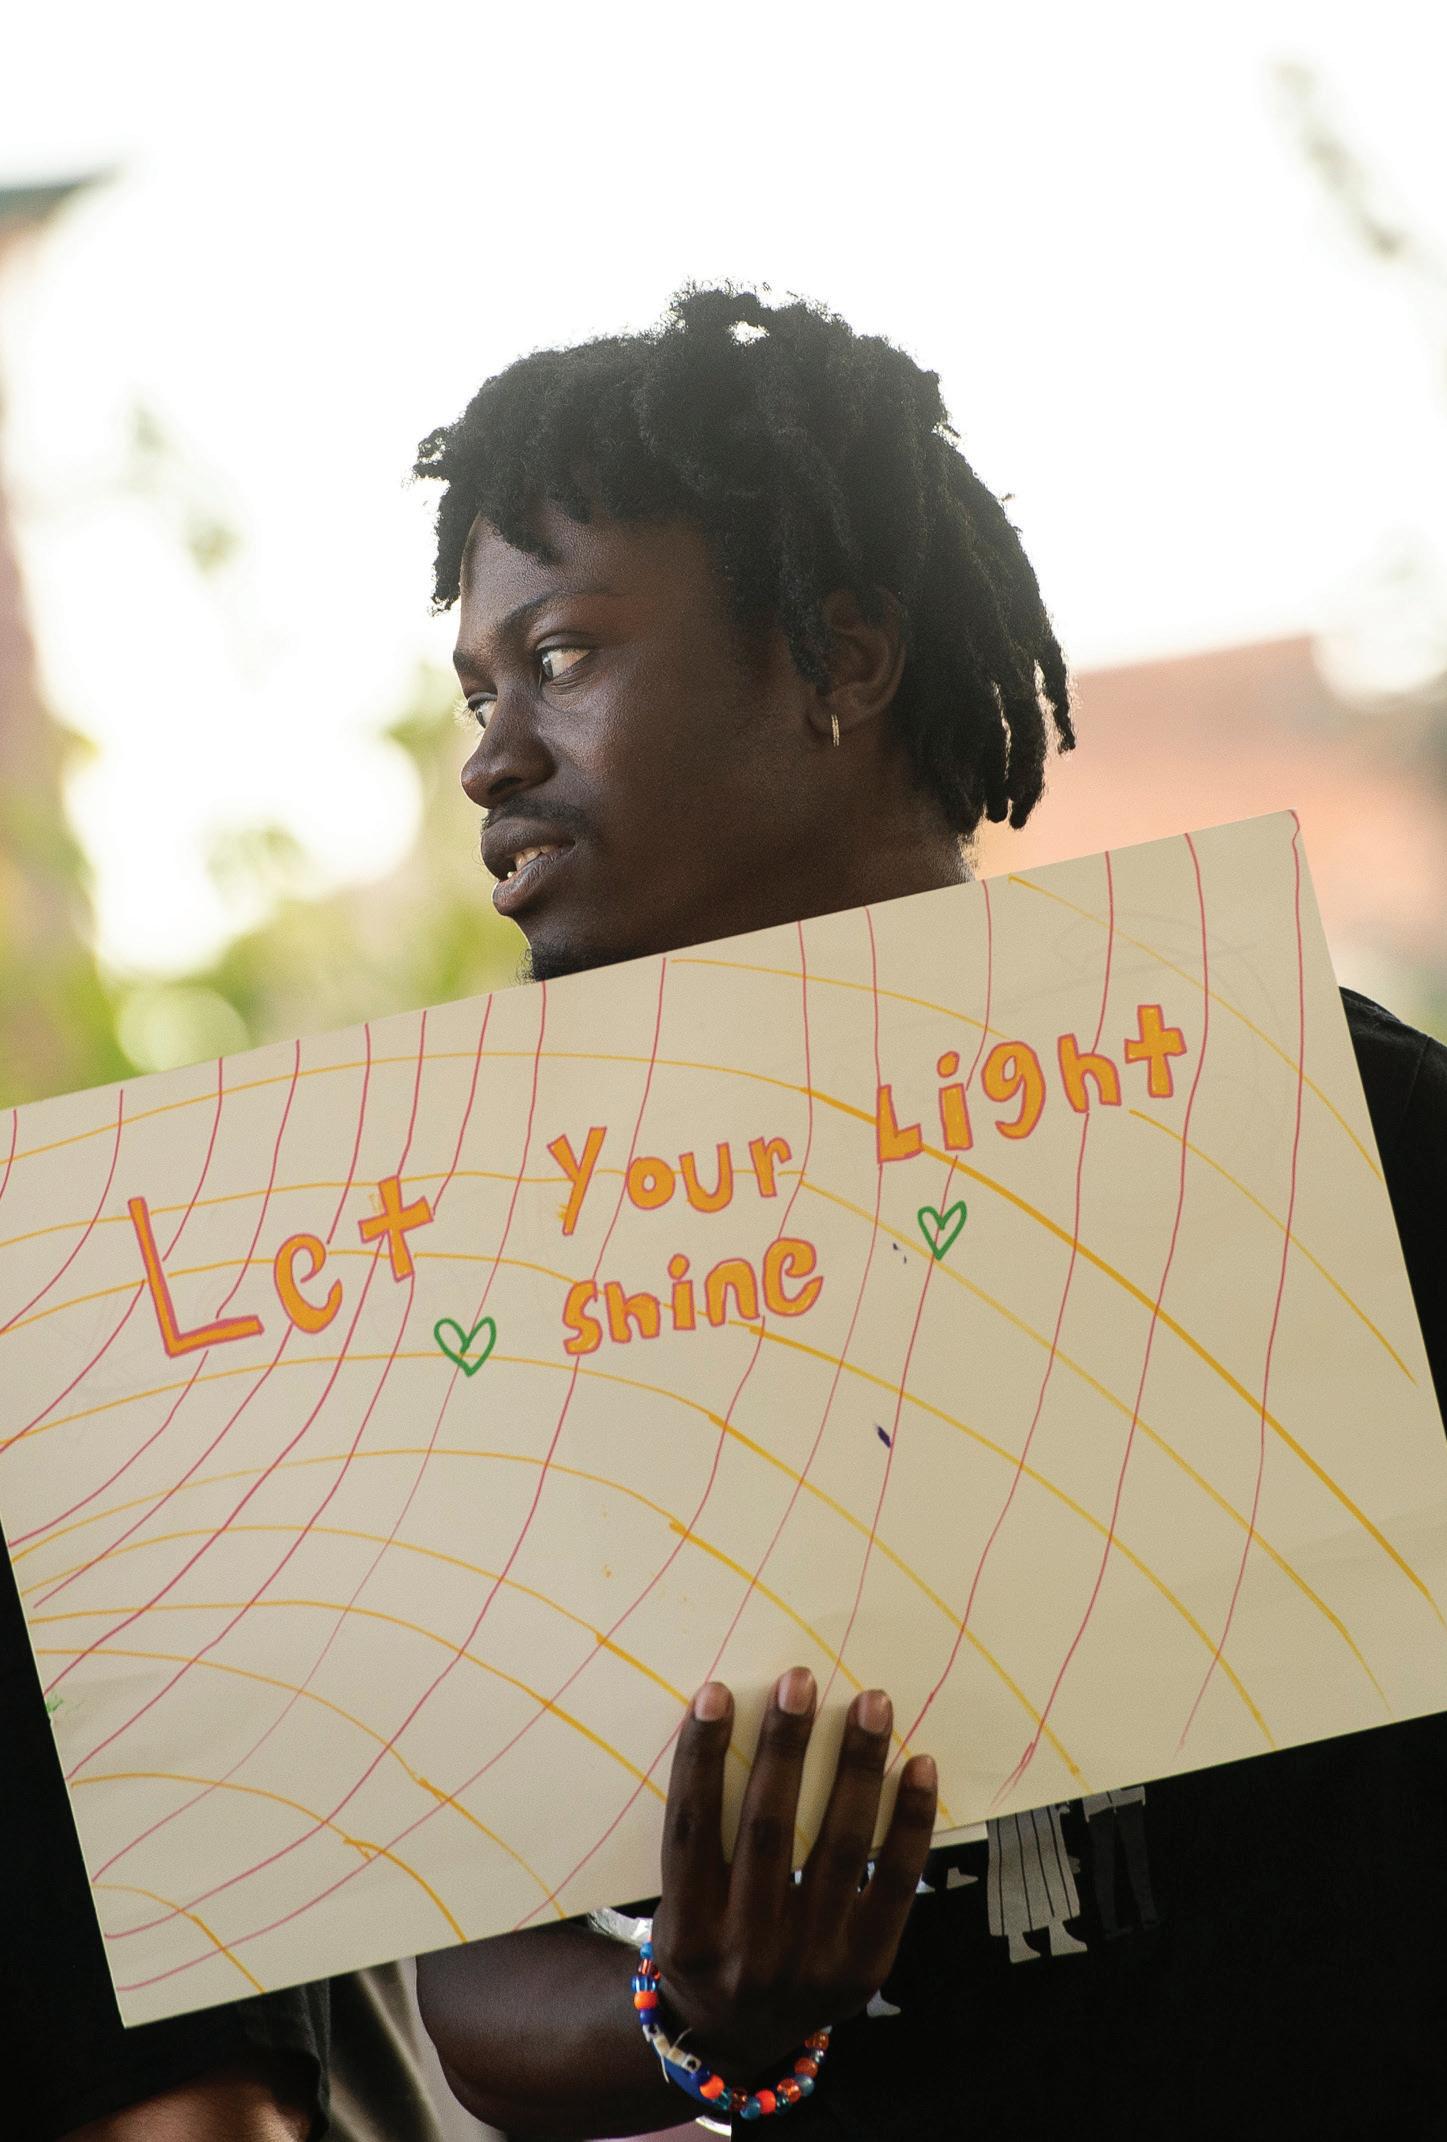 Let your Light
shine